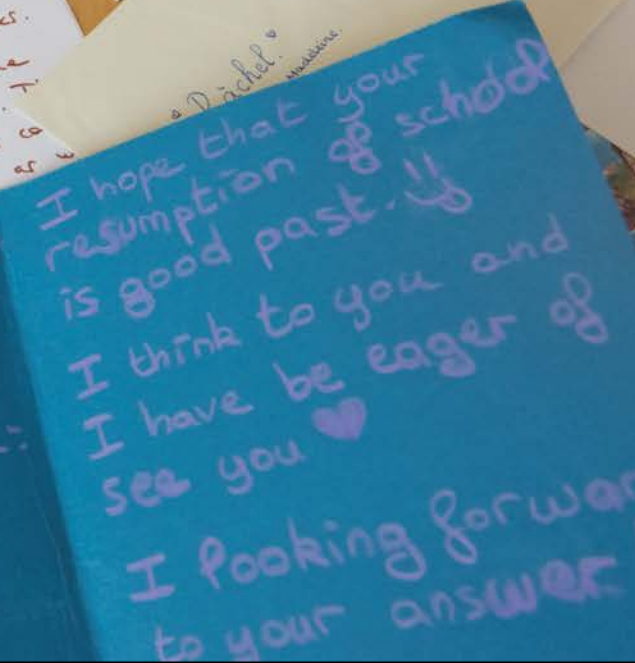 Ràchel.
Madeleine.
I hope that your
resumption of school
is good past.
I think to you and
I have be eager of
see you ♥
I looking forwar
to your answer